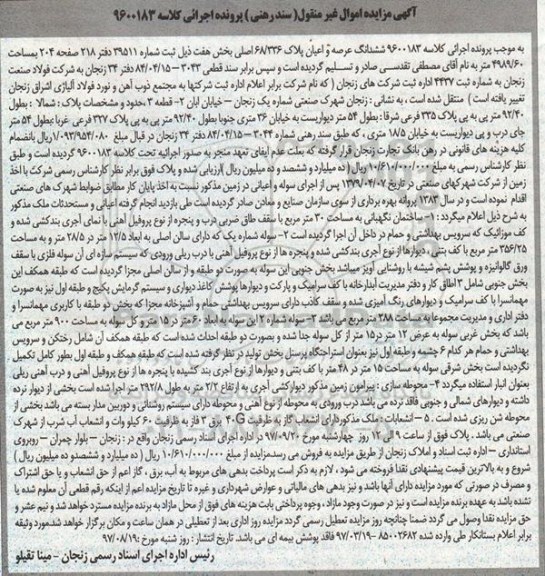 آگهی مزایده اموال غیر منقول( سند رهنی ) پرونده اجرائی کلاسه ۹۶۰۰۱۸۳
به موجب پرونده اجرائی کلاسه ۹۶۰۰۱۸۳ ششدانگ عرصه و اعیان پلاک ۶۸/۳۳۶ اصلی بخش هفت ذیل ثبت شماره ۳۹۵۱۱ دفتر ۲۱۸ صفحه ۲۰۴ بمساحت
۴۹۸۹/۶۰ متر به نام آقای مصطفی تقدسی صادر و تسلیم گردیده است و سپس برابر سند قطعی ۳۰۴۳ – ۸۴/۰۴/۱۵ دفتر ۳۴ زنجان به شرکت فولاد صنعت
زنجان به شماره ثبت ۴۴۳۷ اداره ثبت شرکت های زنجان ( که نام شرکت برابر اعلام اداره ثبت شرکتها به مجتمع ذوب آهن و نورد فولاد آلیاژی اشراق زنجان
تغییر یافته است ) منتقل شده است ، به نشانی : زنجان شهرک صنعتی شماره یک زنجان – خیابان ابان ۲- قطعه ۳ حدود و مشخصات پلاک : شمالا : بطول
۹۲/۴۰ متر پی به پی پلاک ۳۳۵ فرعی شرقا : بطول ۵۴ متر دیواریست به خیابان ۳۶ متری جنوبا بطول ۹۲/۴۰ متر پی به پی پلاک ۳۳۷ فرعی غربا بطول ۵۴ متر
جای درب و پی دیواریست به خیابان ۱۸/۵ متری ، که طبق سند رهنی شماره ۳۰۴۴ – ۸۴/۰۴/۱۵ دفتر ۳۴ زنجان در قبال مبلغ ۱/۰۹۳/۹۵۴/۰۸۰ ریال بانضمام
کلیه هزینه های قانونی در رهن بانک تجارت زنجان قرار گرفته که بعلت عدم ایفای تعهد منجر به صدور اجرائیه تحت کلاسه ۹۶۰۰۱۸۳ گردیده است و طبق
نظر کارشناس رسمی به مبلغ ۱۰/۶۱۰/۰۰۰/۰۰۰ ریال (ده میلیارد و ششصد و ده میلیون ریال )ارزیابی شده و پلاک فوق برابر نظر کارشناس رسمی شرکت با اخذ
زمین از شرکت شهرکهای صنعتی در تاریخ ۱۳۷۹/۰۴/۰۷ پس از اجرای سوله و اعیانی در زمین مذکور نسبت به اخذ پایان کار مطابق ضوابط شهرک های صنعتی
اقدام نموده است و در سال ۱۳۸۳ پروانه بهره برداری از سوی سازمان صنایع و معادن صادر گردیده است طی بازدید انجام گرفته اعیانی و مستحدثات ملک مذکور
به شرح ذیل اعلام میگردد : ۱– ساختمان نگهبانی به مساحت ۳۰ متر مربع با سقف طاق ضربی درب و پنجره از نوع پروفیل آهنی با نمای آجری بندکشی شده و
کف موزائیک که سرویس بهداشتی و حمام در داخل آن اجرا گردیده است ۲– سوله شماره یک که دارای سالن اصلی به ابعاد ۱۲/۵ متر در ۲۸/۵ متر و به مساحت
۳۵۶/۲۵ متر مربع با کف بتنی ، دیوارها از نوع آجری بندکشی شده و پنجره ها از نوع پروفیل آهنی با درب ریلی ورودی که سیستم سازه ای آن سوله فلزی با سقف
ورق گالوانیزه و پوشش پشم شیشه با روشنایی آویز میباشد بخش جنوبی این سوله به صورت دو طبقه و از سالن اصلی مجزا گردیده است که طبقه همکف این
بخش جنوبی شامل ۳ اطاق کار و دفتر مدیریت آبدارخانه با کف سرامیک و پارکت و دیوارها پوشش کاغذ دیواری و سیستم گرمایش پکیج و طبقه اول نیز به صورت
مهمانسرا با کف سرامیک و دیوارهای رنگ آمیزی شده و سقف کاذب دارای سرویس بهداشتی حمام و آشپزخانه مجزا که بخش دو طبقه با کاربری مهمانسرا و
دفتر اداری و مدیریت مجموعا به مساحت ۲۸۸ متر مربع می باشد ۳– سوله شماره ۲ این سوله به ابعاد ۶۰ متر در ۱۵ متر و کل سوله به مساحت ۹۰۰ متر مربع می
باشد که بخش غربی سوله به عرض ۱۲ متر در ۱۵ متر از کل سوله جدا شده و بصورت دو طبقه احداث شده است که طبقه همکف آن شامل رختکن و سرویس
بهداشتی و حمام هر کدام ۶ چشمه و طبقه اول نیز بعنوان استراحتگاه پرسنل بخش تولید در نظر گرفته شده است که طبقه همکف و طبقه اول بطور کامل تکمیل
نگردیده است بخش شرقی سوله به مساحت ۱۵ متر در ۴۸ متر با کف بتنی و دیوارها از نوع آجری بند کشیده با پنجره ها از نوع پروفیل آهنی و درب آهنی ریلی
بعنوان انبار استفاده میگردد ۴– محوطه سازی : پیرامون زمین مذکور دیوارکشی آجری به ارتفاع ۲/۲ متر به طول ۲۹۲/۸ متر اجرا شده است بخشی از دیوار نرده
داشته و دیوارهای شمالی و جنوبی فاقد نرده می باشد درب ورودی به محوطه از نوع آهنی و محوطه دارای سیستم روشنائی و دوربین مدار بسته می باشد بخشی از
محوطه شن ریزی شده است . ۵ – انشعابات : ملک مذکور دارای انشعاب گاز به ظرفیت G ۴۰ برق ۳ فاز به ظرفیت ۶۰ کیلو وات و انشعاب آب شرب از شهرک
صنعتی می باشد . پلاک فوق از ساعت ۹ الی ۱۲ روز چهارشنبه مورخ ۹۷/۰۹/۲۰ در اداره اجرای اسناد رسمی زنجان واقع در : زنجان – بلوار چمران – روبروی
استانداری – اداره ثبت اسناد و املاک زنجان از طریق مزایده به فروش می رسد.مزایده از مبلغ ۱۰/۶۱۰/۰۰۰/۰۰۰ ریال ( ده میلیارد و ششصدو ده میلیون ریال )
شروع و به بالاترین قیمت پیشنهادی نقدا فروخته می شود ، لازم به ذکر است پرداخت بدهی های مربوط به آب برق ، گاز اعم از حق انشعاب و یا حق اشتراک
و مصرف در صورتی که مورد مزایده دارای آنها باشد و نیز بدهی های مالیاتی و عوارض شهرداری و غیره تا تاریخ مزایده اعم از اینکه رقم قطعی آن معلوم شده یا
نشده باشد به عهده برنده مزایده است و نیز در صورت وجود مازاد ، وجوه پرداختی بابت هزینه های فوق از محل مازاد به برنده مزایده مسترد خواهد شد و نیم عشر و
حق مزایده نقدا وصول می گردد ضمنا چنانچه روز مزایده تعطیل رسمی گردد مزایده روز اداری بعد از تعطیلی در همان ساعت و مکان برگزار خواهد شد.مورد وثیقه
برابر اعلام بستانکار طی وارده شده ۸۵۰۰۲۶۸۲ – ۹۷/۰۳/۱۹ فاقد پوشش بیمه ای می باشد. تاریخ انتشار : روز شنبه مورخ :۹۷/۰۸/۱۹
رئیس اداره اجرای اسناد رسمی زنجان – مینا تقیلو